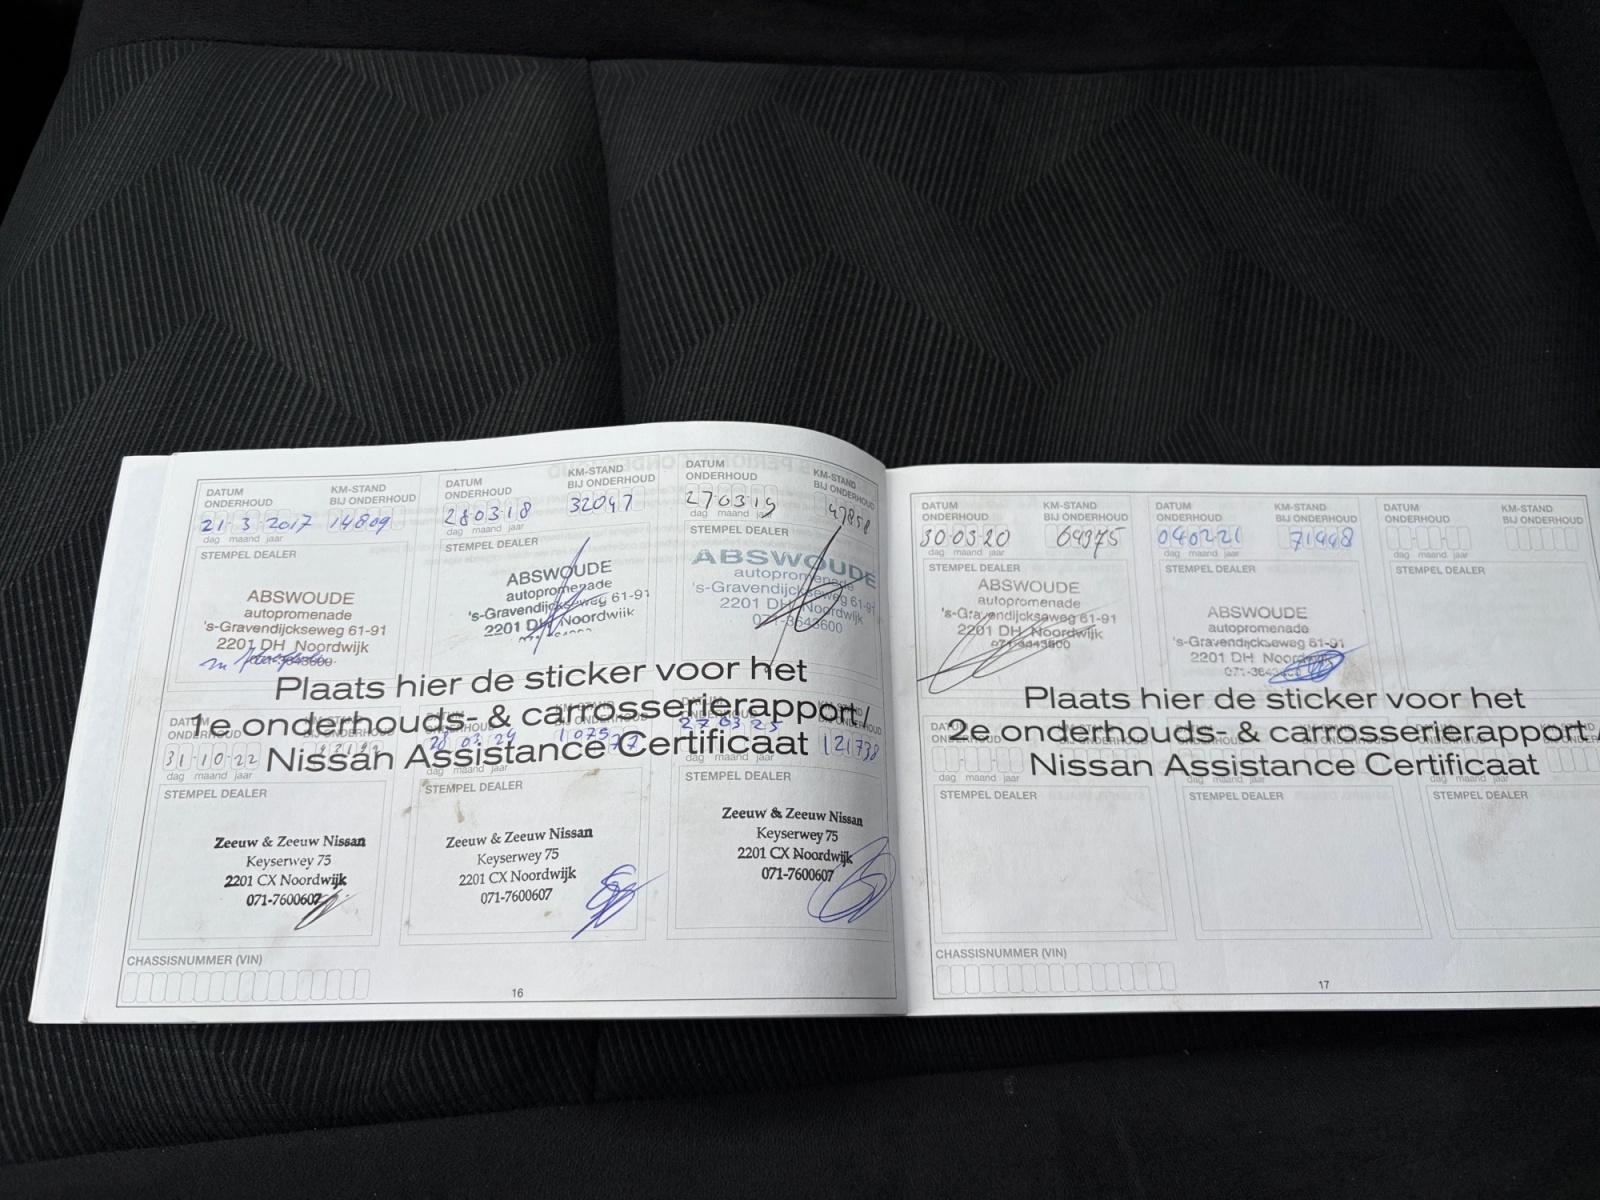 DATUM ONDERHOUD KM-STAND BIJ ONDERHOUD
21-3-2017 14809
dag maand jaar
STEMPEL DEALER
ABSWOUDE
autopromenade
's-Gravendijckseweg 61-91
2201 DH Noordwijk
071-3643600
DATUM ONDERHOUD KM-STAND BIJ ONDERHOUD
280318 32047
dag maand jaar
STEMPEL DEALER
ABSWOUDE
autopromenade
's-Gravendijckseweg 61-91
2201 DH Noordwijk
DATUM ONDERHOUD KM-STAND BIJ ONDERHOUD
270319 47858
dag maand
STEMPEL DEALER
ABSWOUDE
autopromenade
's-Gravendijckseweg 61-91
2201 DH Noordwijk
071-3643600
Plaats hier de sticker voor het
1e onderhouds- & carrosserierapport /
Nissan Assistance Certificaat
DATUM ONDERHOUD
31-10-22
dag maand jaar
STEMPEL DEALER
Zeeuw & Zeeuw Nissan
Keyserwey 75
2201 CX Noordwijk
071-7600607
28 03 24 107577
dag maand jaar
STEMPEL DEALER
Zeeuw & Zeeuw Nissan
Keyserwey 75
2201 CX Noordwijk
071-7600607
270325 121738
dag maand jaar
STEMPEL DEALER
Zeeuw & Zeeuw Nissan
Keyserwey 75
2201 CX Noordwijk
071-7600607
CHASSISNUMMER (VIN)
16
DATUM ONDERHOUD KM-STAND BIJ ONDERHOUD
30-03-20 64975
dag maand jaar
STEMPEL DEALER
ABSWOUDE
autopromenade
's-Gravendijckseweg 61-91
2201 DH Noordwijk
071-3643600
DATUM ONDERHOUD KM-STAND BIJ ONDERHOUD
040221 71448
dag maand jaar
STEMPEL DEALER
ABSWOUDE
autopromenade
's-Gravendijckseweg 61-91
2201 DH Noordwijk
DATUM ONDERHOUD KM-STAND BIJ ONDERHOUD
dag maand jaar
STEMPEL DEALER
Plaats hier de sticker voor het
2e onderhouds- & carrosserierapport /
Nissan Assistance Certificaat
dag maand jaar
STEMPEL DEALER
dag maand jaar
STEMPEL DEALER
dag maand jaar
STEMPEL DEALER
CHASSISNUMMER (VIN)
17